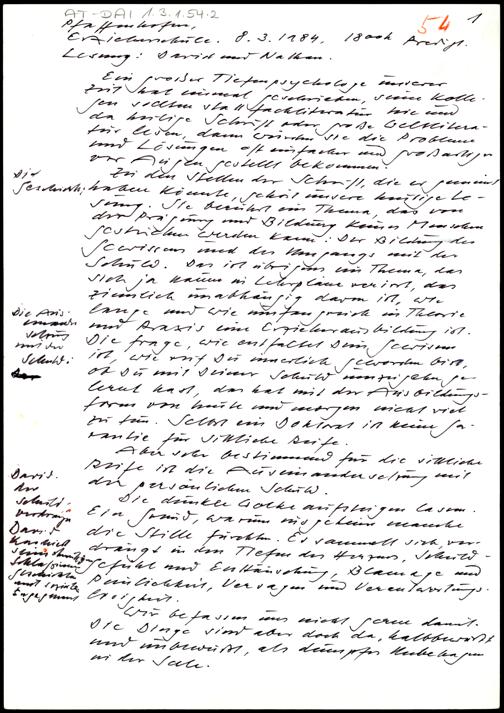 AT-DAI 1.3.1.54.2
54
1
Pfaffenhofen,
Erzieherschule. 8.3.1984, 18ooh Predigt.
Lesung: David und Nathan.
Ein großer Tiefenpsychologe unserer
Zeit hat einmal geschrieben, seine Kolle-
gen sollten statt Fachliteratur hie und
da heilige Schrift oder große Weltlitera-
tur lesen, dann würden sie die Probleme
und Lösungen oft einfacher und großartiger
vor Augen gestellt bekommen.
Zu den Stellen der Schrift, die er gemeint
haben könnte, gehört unsere heutige Le-
sung. Sie berührt ein Thema, das von
der Prägung und Bildung keines Menschen
gestrichen werden kann: Der Bildung des
Gewissens und des Umgangs mit der
Schuld. Das ist übrigens ein Thema, das
sich ja kaum in Lehrpläne verirrt, das
ziemlich unabhängig davon ist, wie
lange und wie umfangreich in Theorie
und Praxis eine Erzieherausbildung ist.
Die Frage, wie entfaltet Dein Gewissen
ist, wie reif Du innerlich geworden bist,
ob Du mit Deiner Schuld umzugehen ge-
lernt hast, das hat mit der Ausbildungs-
form von heute und morgen nicht viel
zu tun. Selbst ein Doktorat ist keine Ga-
rantie für sittliche Reife.
Aber sehr bestimmend für die sittliche
Reife ist die Auseinandersetzung mit
der persönlichen Schuld.
Die dunkle Wolke aufsteigen lassen.
Ein Grund, warum insgeheim manche
die Stille fürchten. Es sammelt sich, ver-
drängt in den Tiefen des Herzens, Schuld-
gefühl und Enttäuschung, Blamage und
Peinlichkeit, Versagen und Verantwortungs-
losigkeit.
Wir befassen uns nicht gerne damit.
Die Dinge sind aber doch da, halbbewußt
und unbewußt, als dumpfes Unbehagen
in der Seele.
Die
Geschichte:
Die Aus-
einander
setzung
mit der
Schuld:
David.
der
Schuld-
verdränger
David
seine
Schlaf
Geschichten
und soziales
Engagement